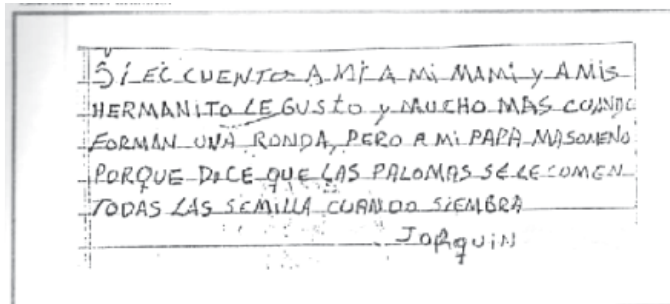 SI EL CUENTO A MI A MI MAMI Y A MIS
HERMANITO LE GUSTO Y MUCHO MAS CUANDO
FORMAN UNA RONDA, PERO A MI PAPA MASOMENO
PORQUE DICE QUE LAS PALOMAS SE LE COMEN
TODAS LAS SEMILLA CUANDO SIEMBRA
JOAQUIN